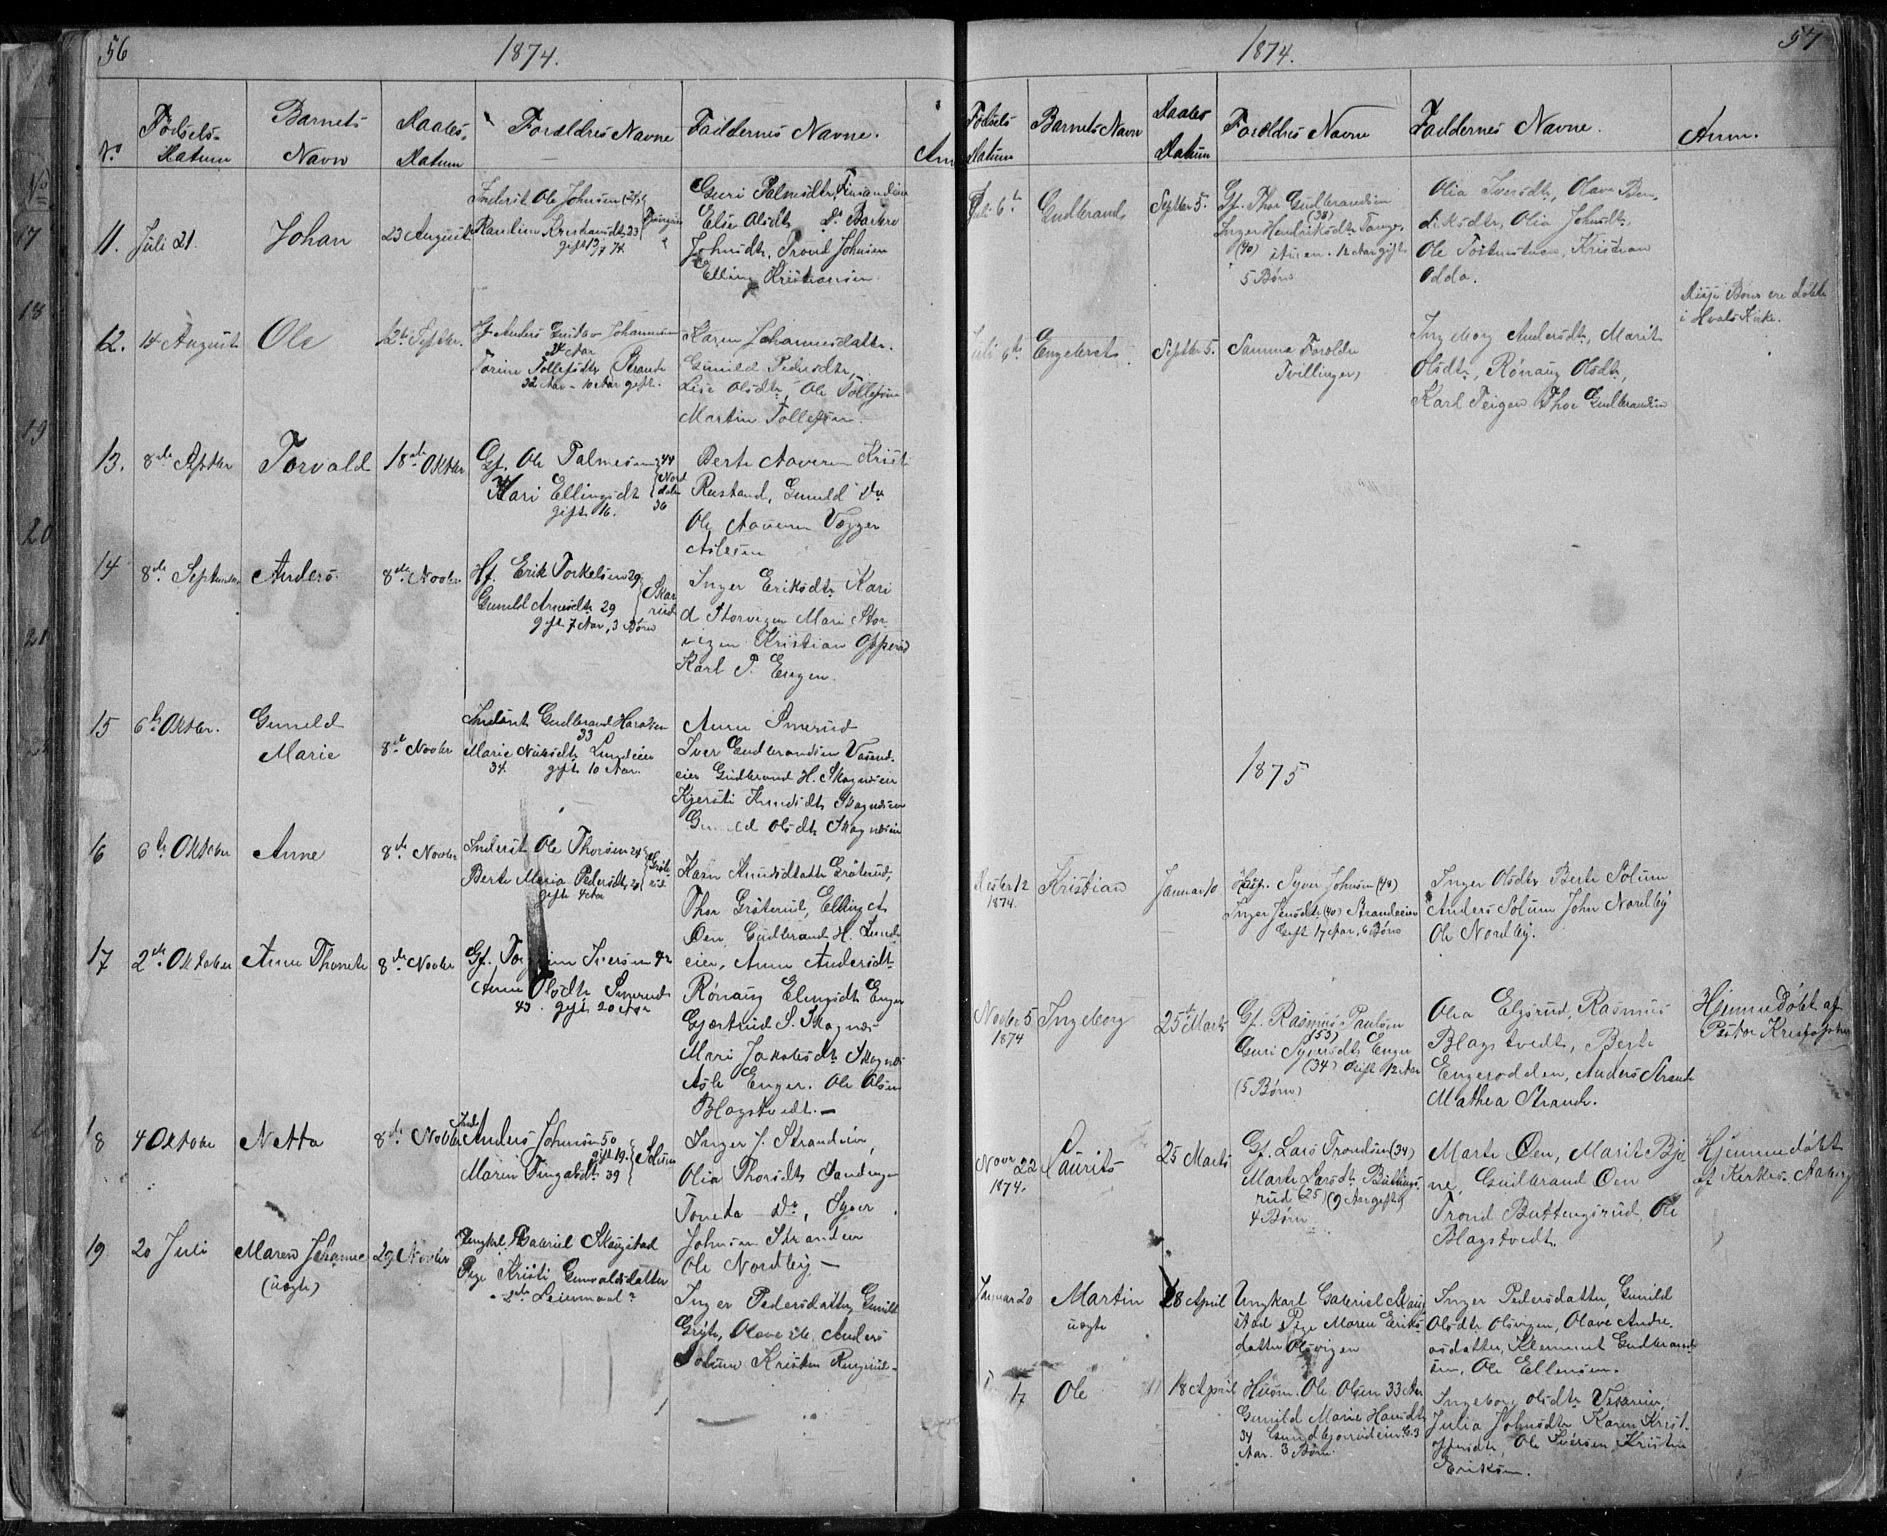 56
1874.
No
Fødsels-
Datum
Barnets
Navn
Daabs-
Datum
Forældres Navne
Faddernes Navne.
11.
Juli 21.
Johan
23 August
Inderst Ole Johnsen
gift 74.
Guri Palmesdtr,
Else Olsdtr
Johnsdtr, Trond Johnsen
Elling Kristiansen.
12.
14 August
Ole
12te Septbr.
Gf Anders Gustav Johannesen
34 Aar
Torine Tollefsdtr Strande
32 Aar - 10 Aar gift.
Karen Johannesdatter.
Gunild Pedersdtr,
Lise Olsdtr, Ole Tollefsen
Martin Tollefsen.
13.
8de Septbr
Torvald
18de Oktbr
Gf. Ole Palmesen 44
Kari Ellingsdtr
36
gift 16.
Berte Aaveren Kristi
Rustand, Gunild Do
Ole Aaveren
Aslesen
14
8de September
Anders.
8de Novbr
Hf. Erik Torkelsen 29
Gunild Arnesdtr 29
Skarrud
gift 7 Aar, 3 Børn
Inger Eriksdtr Kari
d Storvigen Mari Stor-
vigen Kristian Opperud
Karl P. Engen.
15
6te Oktbr.
Gunild
Marie
8de Novbr
Inderst Gudbrand Haraksen
33
Marie Nilsdtr Lundeien
34. gift 10 Aar.
Anne Smerud
Iver Gudbrandsen Vasend-
eier Gudbrand H. Skagnæsen
Kjersti Knudsdtr Skagnæsen
Gunild Olsdtr Skagnæsen
16
6te Oktober
Anne
8de Novbr
Inderst Ole Thorsen 24
Berte Maria Pedersdtr
gift 4 Aar
Karn Knudsdatter Grøterud,
Thor Grøterud, Elling
Øen, Gudbrand H. Lund-
eier, Anne Andersdtr
17
2de Oktober
Anne Thonette
8de Novbr
Gf. Iversen 42
Anne Olsdtr Smerud
43. gift 20 Aar
Rønaug Elingsdtr Enger
Gjertrud S. Skagnæs
Mari Jakobsdtr Skagnæs
Asle Enger. Ole Olsen
Blagstvedt. —
18
4 Oktobr
Netta
8de Novbr
Inds
Anders Johnsen 50
gift 19.
Maren Tingalsdtr 39
Solum
Inger J. Strandeien,
Olia Thorsdtr Sandingen
Toneta Do, Syver
Johnsen Stranden
Ole Nordby. —
19
20 Juli
Maren Johanne
(uægte)
29 Novbr
Ungkrl. Gabriel Skaugstad
Pige Kristi Gunvaldsdatter
2de Leiermaal
Inger Pedersdatter Gunild
Olave Anders
Solum Kristen Ringerud. -
57
1874.
Fødsels
Datum
Barnets Navn
Daabs
Datum
Forældres Navne
Faddernes Navne.
Anm.
Juli 6te
Gudbrand
Septbr 5.
Gf. Thor Gudbrandsen
(38)
Inger Henriksdtr Tange-
(40) stuen. 12 Aar gift
5 Børn
Olia Iversdtr, Olava Ben-
diksdtr, Olia Johnsdtr,
Ole Kristian
Odda.
Disse Børn ere døbte
i Hvals Kirke.
Juli 6te
Engebret
Septbr 5.
Samme Forældre
Tvillinger,
Ingeborg Andersdtr, Marit
Olsdtr, Rønaug Olsdtr,
Karl Teigen Thor Gudbrandsen
1875
Desbr 12
1874.
Kristian
Januar 10
Husf. Syver Johnsen (48)
Inger Jensdtr (40) Strandeien
Gift 17 Aar, 6 Børn
Inger Olsdtr Berte Solum
Anders Solum John Nordby
Ole Nordby.
Novbr 5
1874
Ingeborg
25de Marts
Gf. Rasmus Paulsen
(53)
Guri Syversdtr Enger
(34) Gift 12 Aar
(5 Børn)
Olia Elgsrud, Rasmus
Blagstvedt, Berte
Engerodden, Anders Strande
Mathea Strande.
Hjemmedøbt af
Pastor
Novr 22
1874.
Laurits
25 Marts
Gf. Lars Trondsen (34)
Marte Larsdtr Buttings-
rud (25) (9 Aar gift)
4 Børn
Marte Øen, Marit Bjø
ne, Gudbrand Øen
Trond Buttengsrud, Ole
Blagstvedt.
Hjemmedøbt
af Kirkes. Aaberg
Januar 20
Martin
uægte
18 April
Ungkarl Gabriel Skaug
stad Pige Maren Eriks-
datter Olsvigen
Inger Pedersdatter, Gunild
Olsdtr Olsvigen, Olave Andre-
asdatter, Klemmet Gudbrand-
sen, Ole Ellensen.
17
Ole
18 April
Husm. Ole Olsen 33 Aar
Gunild Marie Hansdtr
34
Aar. 3 Børn.
Ingeborg Olsdtr
Julia Johnsdtr Karen Krist-
offersdtr, Ole Iversen, Kristian
Eriksen.